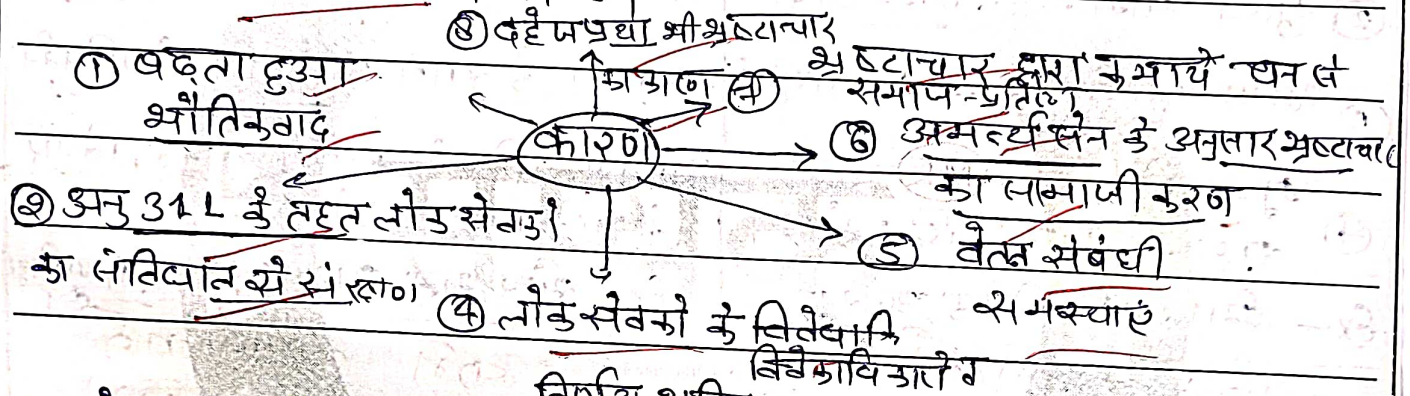 ⑧ दहेजप्रथा भी भ्रष्टाचार
का कारण
① बढ़ता हुआ
भौतिकवाद
⑦ भ्रष्टाचार द्वारा कमाये धन से
समाज-प्रतिष्ठा
कारण
⑥ अमर्त्य सेन के अनुसार भ्रष्टाचार
का सामाजीकरण
② अनु 311 के तहत लोक सेवकों
का संविधान से संरक्षण
⑤ वेतन संबंधी
समस्याएं
④ लोक सेवको के
विवेकाधिकारो व